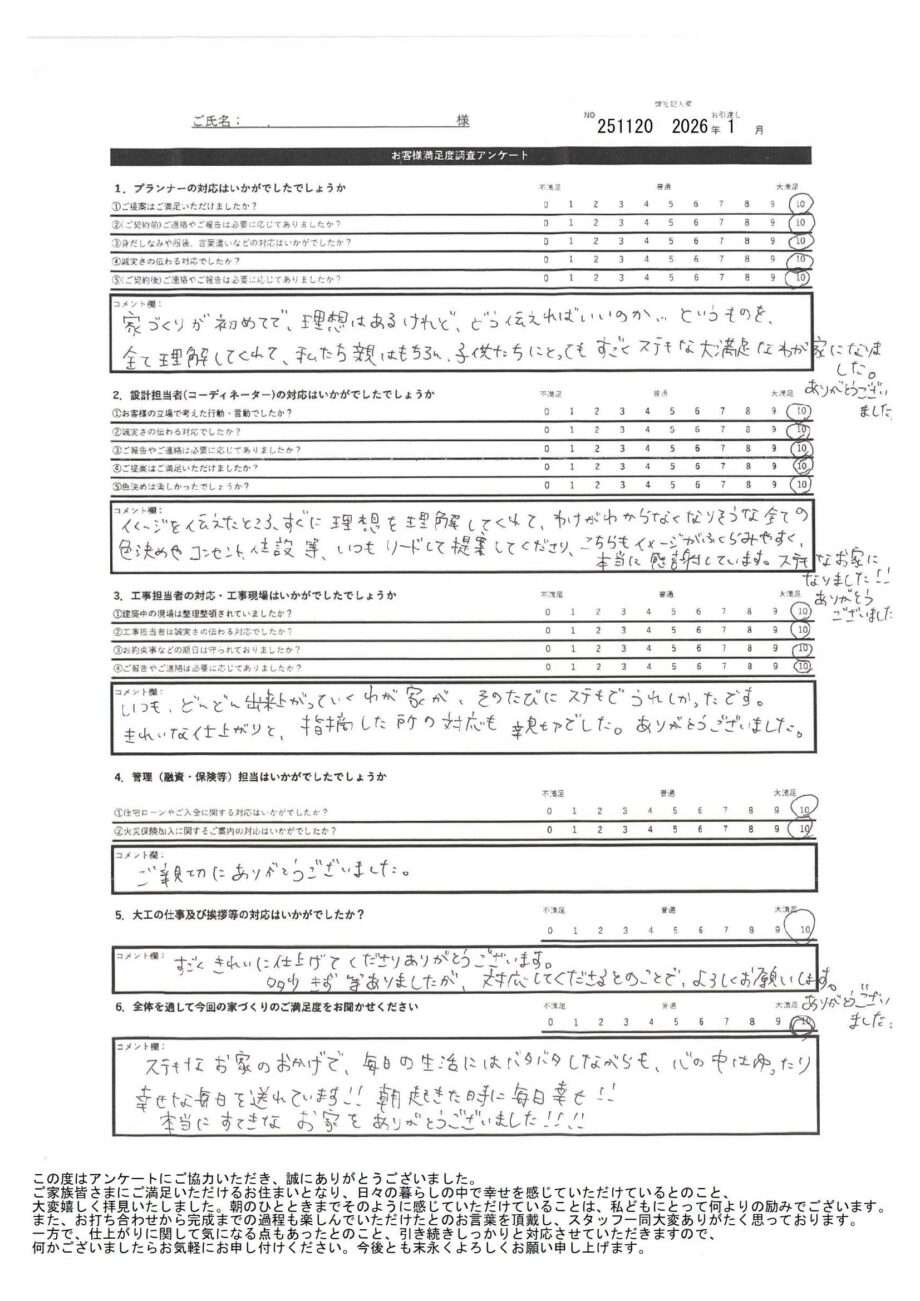 弊社記入欄
ご氏名： 様
NO 251120 2026年 お引渡し 1月
お客様満足度調査アンケート
1．プランナーの対応はいかがでしたでしょうか 不満足 普通 大満足
①ご提案はご満足いただけましたか？ 0 1 2 3 4 5 6 7 8 9 10
②(ご契約前)ご連絡やご報告は必要に応じてありましたか？ 0 1 2 3 4 5 6 7 8 9 10
③身だしなみや服装、言葉遣いなどの対応はいかがでしたか？ 0 1 2 3 4 5 6 7 8 9 10
④誠実さの伝わる対応でしたか？ 0 1 2 3 4 5 6 7 8 9 10
⑤(ご契約後)ご連絡やご報告は必要に応じてありましたか？ 0 1 2 3 4 5 6 7 8 9 10
コメント欄：
家づくりが初めてで、理想はあるけれど、どう伝えればいいのか… というものを、
全て理解してくれて、私たち親はもちろん、子供たちにとってもすごくステキな大満足なわが家になりま
した。
ありがとうござい
ました
2．設計担当者(コーディネーター)の対応はいかがでしたでしょうか 不満足 普通 大満足
①お客様の立場で考えた行動・言動でしたか？ 0 1 2 3 4 5 6 7 8 9 10
②誠実さの伝わる対応でしたか？ 0 1 2 3 4 5 6 7 8 9 10
③ご報告やご連絡は必要に応じてありましたか？ 0 1 2 3 4 5 6 7 8 9 10
④ご提案はご満足いただけましたか？ 0 1 2 3 4 5 6 7 8 9 10
⑤色決めは楽しかったでしょうか？ 0 1 2 3 4 5 6 7 8 9 10
コメント欄：
イメージを伝えたところ、すぐに理想を理解してくれて、わけがわからなくなりそうな全ての
色決めやコンセント、住設等、いつもリードして提案してくださり、こちらもイメージがふくらみやすく、
本当に感謝しています。ステキなお家に
なりました!!
ありがとう
ございました
3．工事担当者の対応・工事現場はいかがでしたでしょうか 不満足 普通 大満足
①建築中の現場は整理整頓されていましたか？ 0 1 2 3 4 5 6 7 8 9 10
②工事担当者は誠実さの伝わる対応でしたか？ 0 1 2 3 4 5 6 7 8 9 10
③お約束事などの期日は守られておりましたか？ 0 1 2 3 4 5 6 7 8 9 10
④ご報告やご連絡は必要に応じてありましたか？ 0 1 2 3 4 5 6 7 8 9 10
コメント欄：
いつも、どんどん出来上がっていくわが家が、そのたびにステキでうれしかったです。
きれいな仕上がりと、指摘した所の対応も親切でした。ありがとうございました。
4．管理（融資・保険等）担当はいかがでしたでしょうか
不満足 普通 大満足
①住宅ローンやご入金に関する対応はいかがでしたか？ 0 1 2 3 4 5 6 7 8 9 10
②火災保険加入に関するご案内の対応はいかがでしたか？ 0 1 2 3 4 5 6 7 8 9 10
コメント欄：
ご親切にありがとうございました。
5．大工の仕事及び挨拶等の対応はいかがでしたか？ 不満足 普通 大満足
0 1 2 3 4 5 6 7 8 9 10
コメント欄：
すごくきれいに仕上げてくださりありがとうございます。
多少きず等ありましたが、対応してくださるとのことで、よろしくお願いします。
ありがとうござい
ました
6．全体を通して今回の家づくりのご満足度をお聞かせください 不満足 普通 大満足
0 1 2 3 4 5 6 7 8 9 10
コメント欄：
ステキなお家のおかげで、毎日の生活にはバタバタしながらも、心の中はゆったり
幸せな毎日を送れています!! 朝起きた時に毎日幸せ!!
本当にすてきなお家をありがとうございました!!!!
この度はアンケートにご協力いただき、誠にありがとうございました。
ご家族皆さまにご満足いただけるお住まいとなり、日々の暮らしの中で幸せを感じていただけているとのこと、
大変嬉しく拝見いたしました。朝のひとときまでそのように感じていただけていることは、私どもにとって何よりの励みでございます。
また、お打ち合わせから完成までの過程も楽しんでいただけたとのお言葉を頂戴し、スタッフ一同大変ありがたく思っております。
一方で、仕上がりに関して気になる点もあったとのこと、引き続きしっかりと対応させていただきますので、
何かございましたらお気軽にお申し付けください。今後とも末永くよろしくお願い申し上げます。